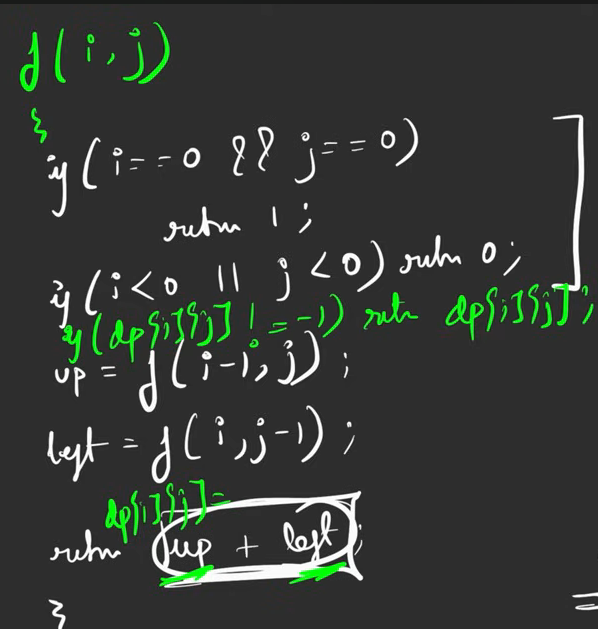 f(i,j)
{
if(i==0 && j==0)
return 1;
if(i<0 || j<0) return 0;
if(dp[i][j] != -1) return dp[i][j];
up = f(i-1,j);
left = f(i,j-1);
dp[i][j]=
return up + left;
}
=